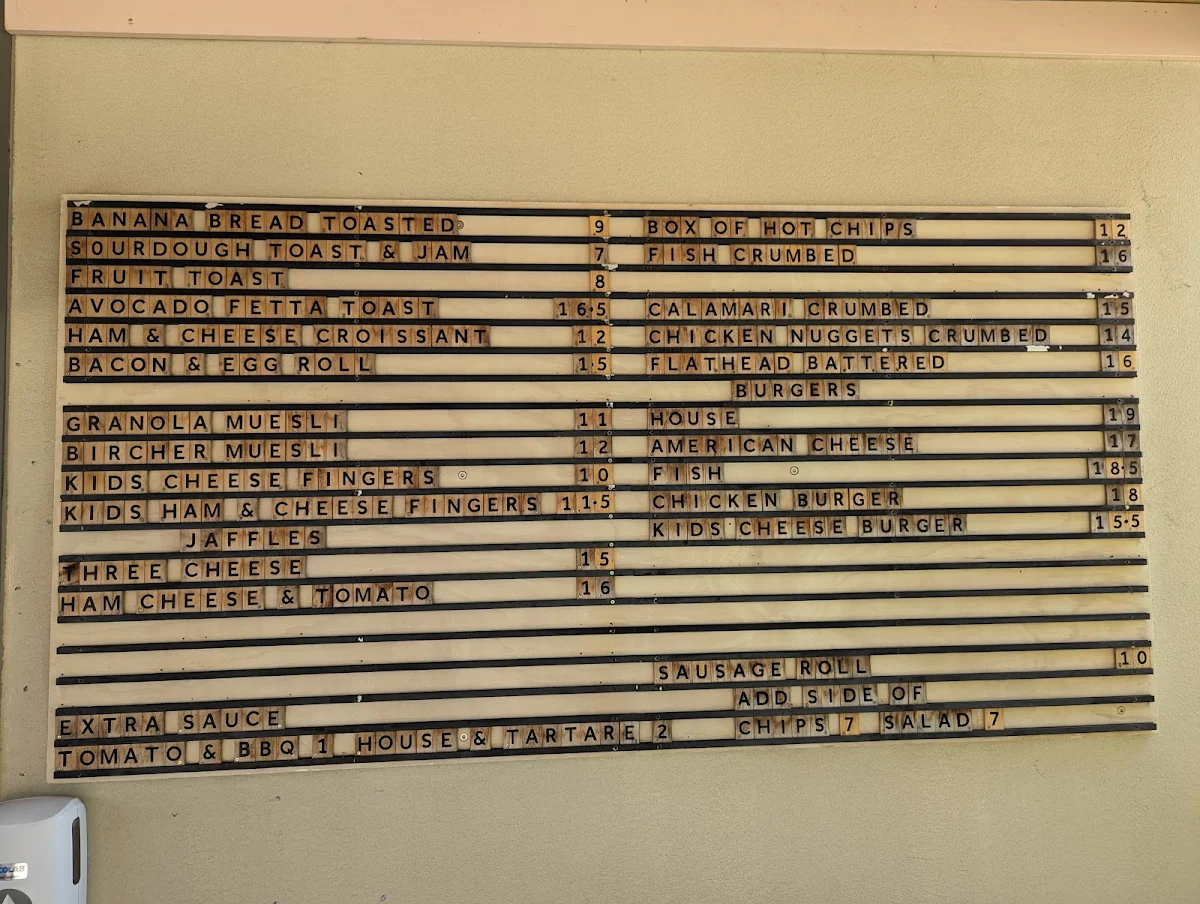 BANANA BREAD TOASTED 9
SOURDOUGH TOAST & JAM 7
FRUIT TOAST 8
AVOCADO FETTA TOAST 16.5
HAM & CHEESE CROISSANT 12
BACON & EGG ROLL 15
GRANOLA MUESLI 11
BIRCHER MUESLI 12
KIDS CHEESE FINGERS 10
KIDS HAM & CHEESE FINGERS 11.5
JAFFLES
THREE CHEESE 15
HAM CHEESE & TOMATO 16
EXTRA SAUCE
TOMATO & BBQ 1 HOUSE & TARTARE 2
BOX OF HOT CHIPS 12
FISH CRUMBED 16
CALAMARI CRUMBED 15
CHICKEN NUGGETS CRUMBED 14
FLATHEAD BATTERED 16
BURGERS
HOUSE 19
AMERICAN CHEESE 17
FISH 18.5
CHICKEN BURGER 18
KIDS CHEESE BURGER 15.5
SAUSAGE ROLL 10
ADD SIDE OF
CHIPS 7 SALAD 7